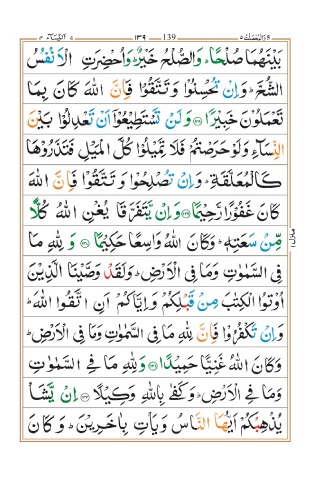 والمحصنٰت ٥ ١٣٩ 139 النسآء ٤
بَيْنَهُمَا صُلْحًا ؕ وَالصُّلْحُ خَيْرٌ ؕ وَاُحْضِرَتِ الْاَنْفُسُ
الشُّحَّ ؕ وَاِنْ تُحْسِنُوْا وَتَتَّقُوْا فَاِنَّ اللّٰهَ كَانَ بِمَا
تَعْمَلُوْنَ خَبِيْرًا ﴿۱۲۸﴾ وَلَنْ تَسْتَطِيْعُوْۤا اَنْ تَعْدِلُوْا بَيْنَ
النِّسَآءِ وَلَوْ حَرَصْتُمْ فَلَا تَمِيْلُوْا كُلَّ الْمَيْلِ فَتَذَرُوْهَا
كَالْمُعَلَّقَةِ ؕ وَاِنْ تُصْلِحُوْا وَتَتَّقُوْا فَاِنَّ اللّٰهَ
كَانَ غَفُوْرًا رَّحِيْمًا ﴿۱۲۹﴾ وَاِنْ يَّتَفَرَّقَا يُغْنِ اللّٰهُ كُلًّا
مِّنْ سَعَتِهٖ ؕ وَكَانَ اللّٰهُ وَاسِعًا حَكِيْمًا ﴿۱۳۰﴾ وَلِلّٰهِ مَا
فِى السَّمٰوٰتِ وَمَا فِى الْاَرْضِ ؕ وَلَقَدْ وَصَّيْنَا الَّذِيْنَ
اُوْتُوا الْكِتٰبَ مِنْ قَبْلِكُمْ وَاِيَّاكُمْ اَنِ اتَّقُوا اللّٰهَ ؕ
وَاِنْ تَكْفُرُوْا فَاِنَّ لِلّٰهِ مَا فِى السَّمٰوٰتِ وَمَا فِى الْاَرْضِ ؕ
وَكَانَ اللّٰهُ غَنِيًّا حَمِيْدًا ﴿۱۳۱﴾ وَلِلّٰهِ مَا فِى السَّمٰوٰتِ
وَمَا فِى الْاَرْضِ ؕ وَكَفٰى بِاللّٰهِ وَكِيْلًا ﴿۱۳۲﴾ اِنْ يَّشَاْ
يُذْهِبْكُمْ اَيُّهَا النَّاسُ وَيَاْتِ بِاٰخَرِيْنَ ؕ وَكَانَ
منزل ١